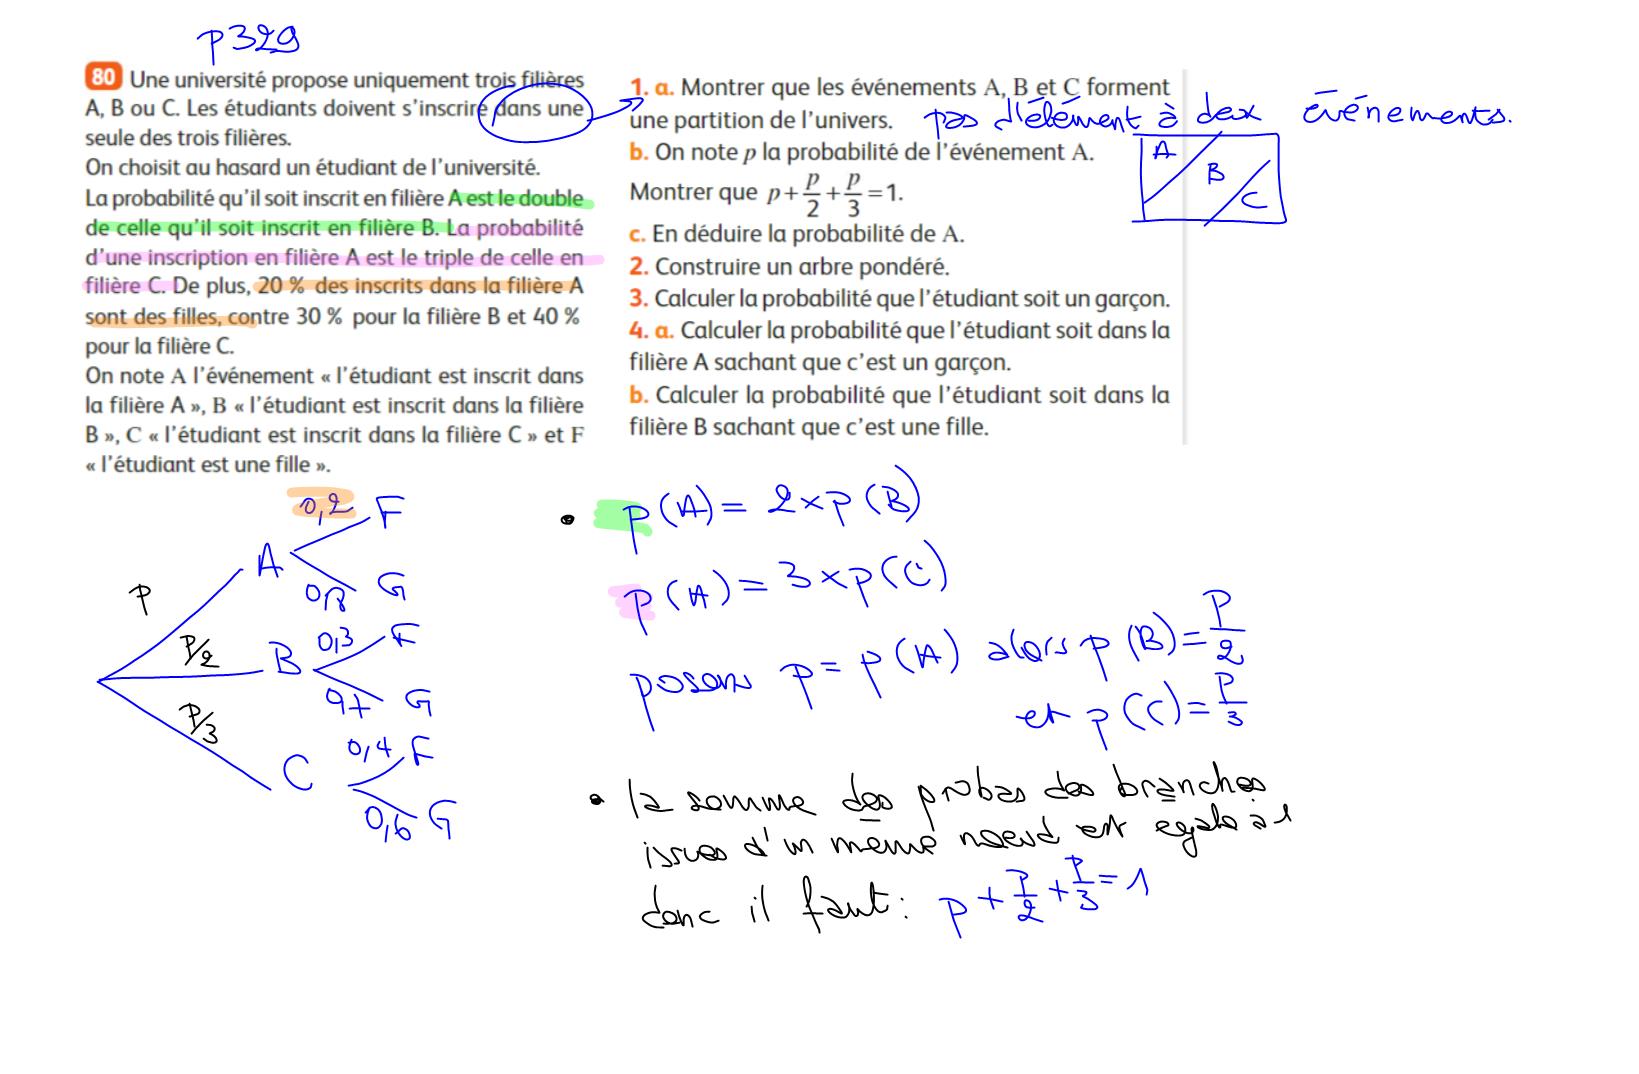 p329
80 Une université propose uniquement trois filières
A, B ou C. Les étudiants doivent s'inscrire dans une
seule des trois filières.
On choisit au hasard un étudiant de l'université.
La probabilité qu'il soit inscrit en filière A est le double
de celle qu'il soit inscrit en filière B. La probabilité
d'une inscription en filière A est le triple de celle en
filière C. De plus, 20 % des inscrits dans la filière A
sont des filles, contre 30 % pour la filière B et 40 %
pour la filière C.
On note A l'événement « l'étudiant est inscrit dans
la filière A », B « l'étudiant est inscrit dans la filière
B », C « l'étudiant est inscrit dans la filière C » et F
« l'étudiant est une fille ».
1. a. Montrer que les événements A, B et C forment
une partition de l'univers.
pas d'élément à deux événements.
A
B
C
b. On note p la probabilité de l'événement A.
Montrer que p + p/2 + p/3 = 1.
c. En déduire la probabilité de A.
2. Construire un arbre pondéré.
3. Calculer la probabilité que l'étudiant soit un garçon.
4. a. Calculer la probabilité que l'étudiant soit dans la
filière A sachant que c'est un garçon.
b. Calculer la probabilité que l'étudiant soit dans la
filière B sachant que c'est une fille.
0,2 F
A
p
0,8 G
P/2
B
0,3 F
0,7 G
P/3
C
0,4 F
0,6 G
• p(A) = 2 × p(B)
p(A) = 3 × p(C)
posons p = p(A) alors p(B) = P/2
et p(C) = P/3
• la somme des probas des branches
issues d'un meme noeud est egale à 1
donc il faut : p + P/2 + P/3 = 1